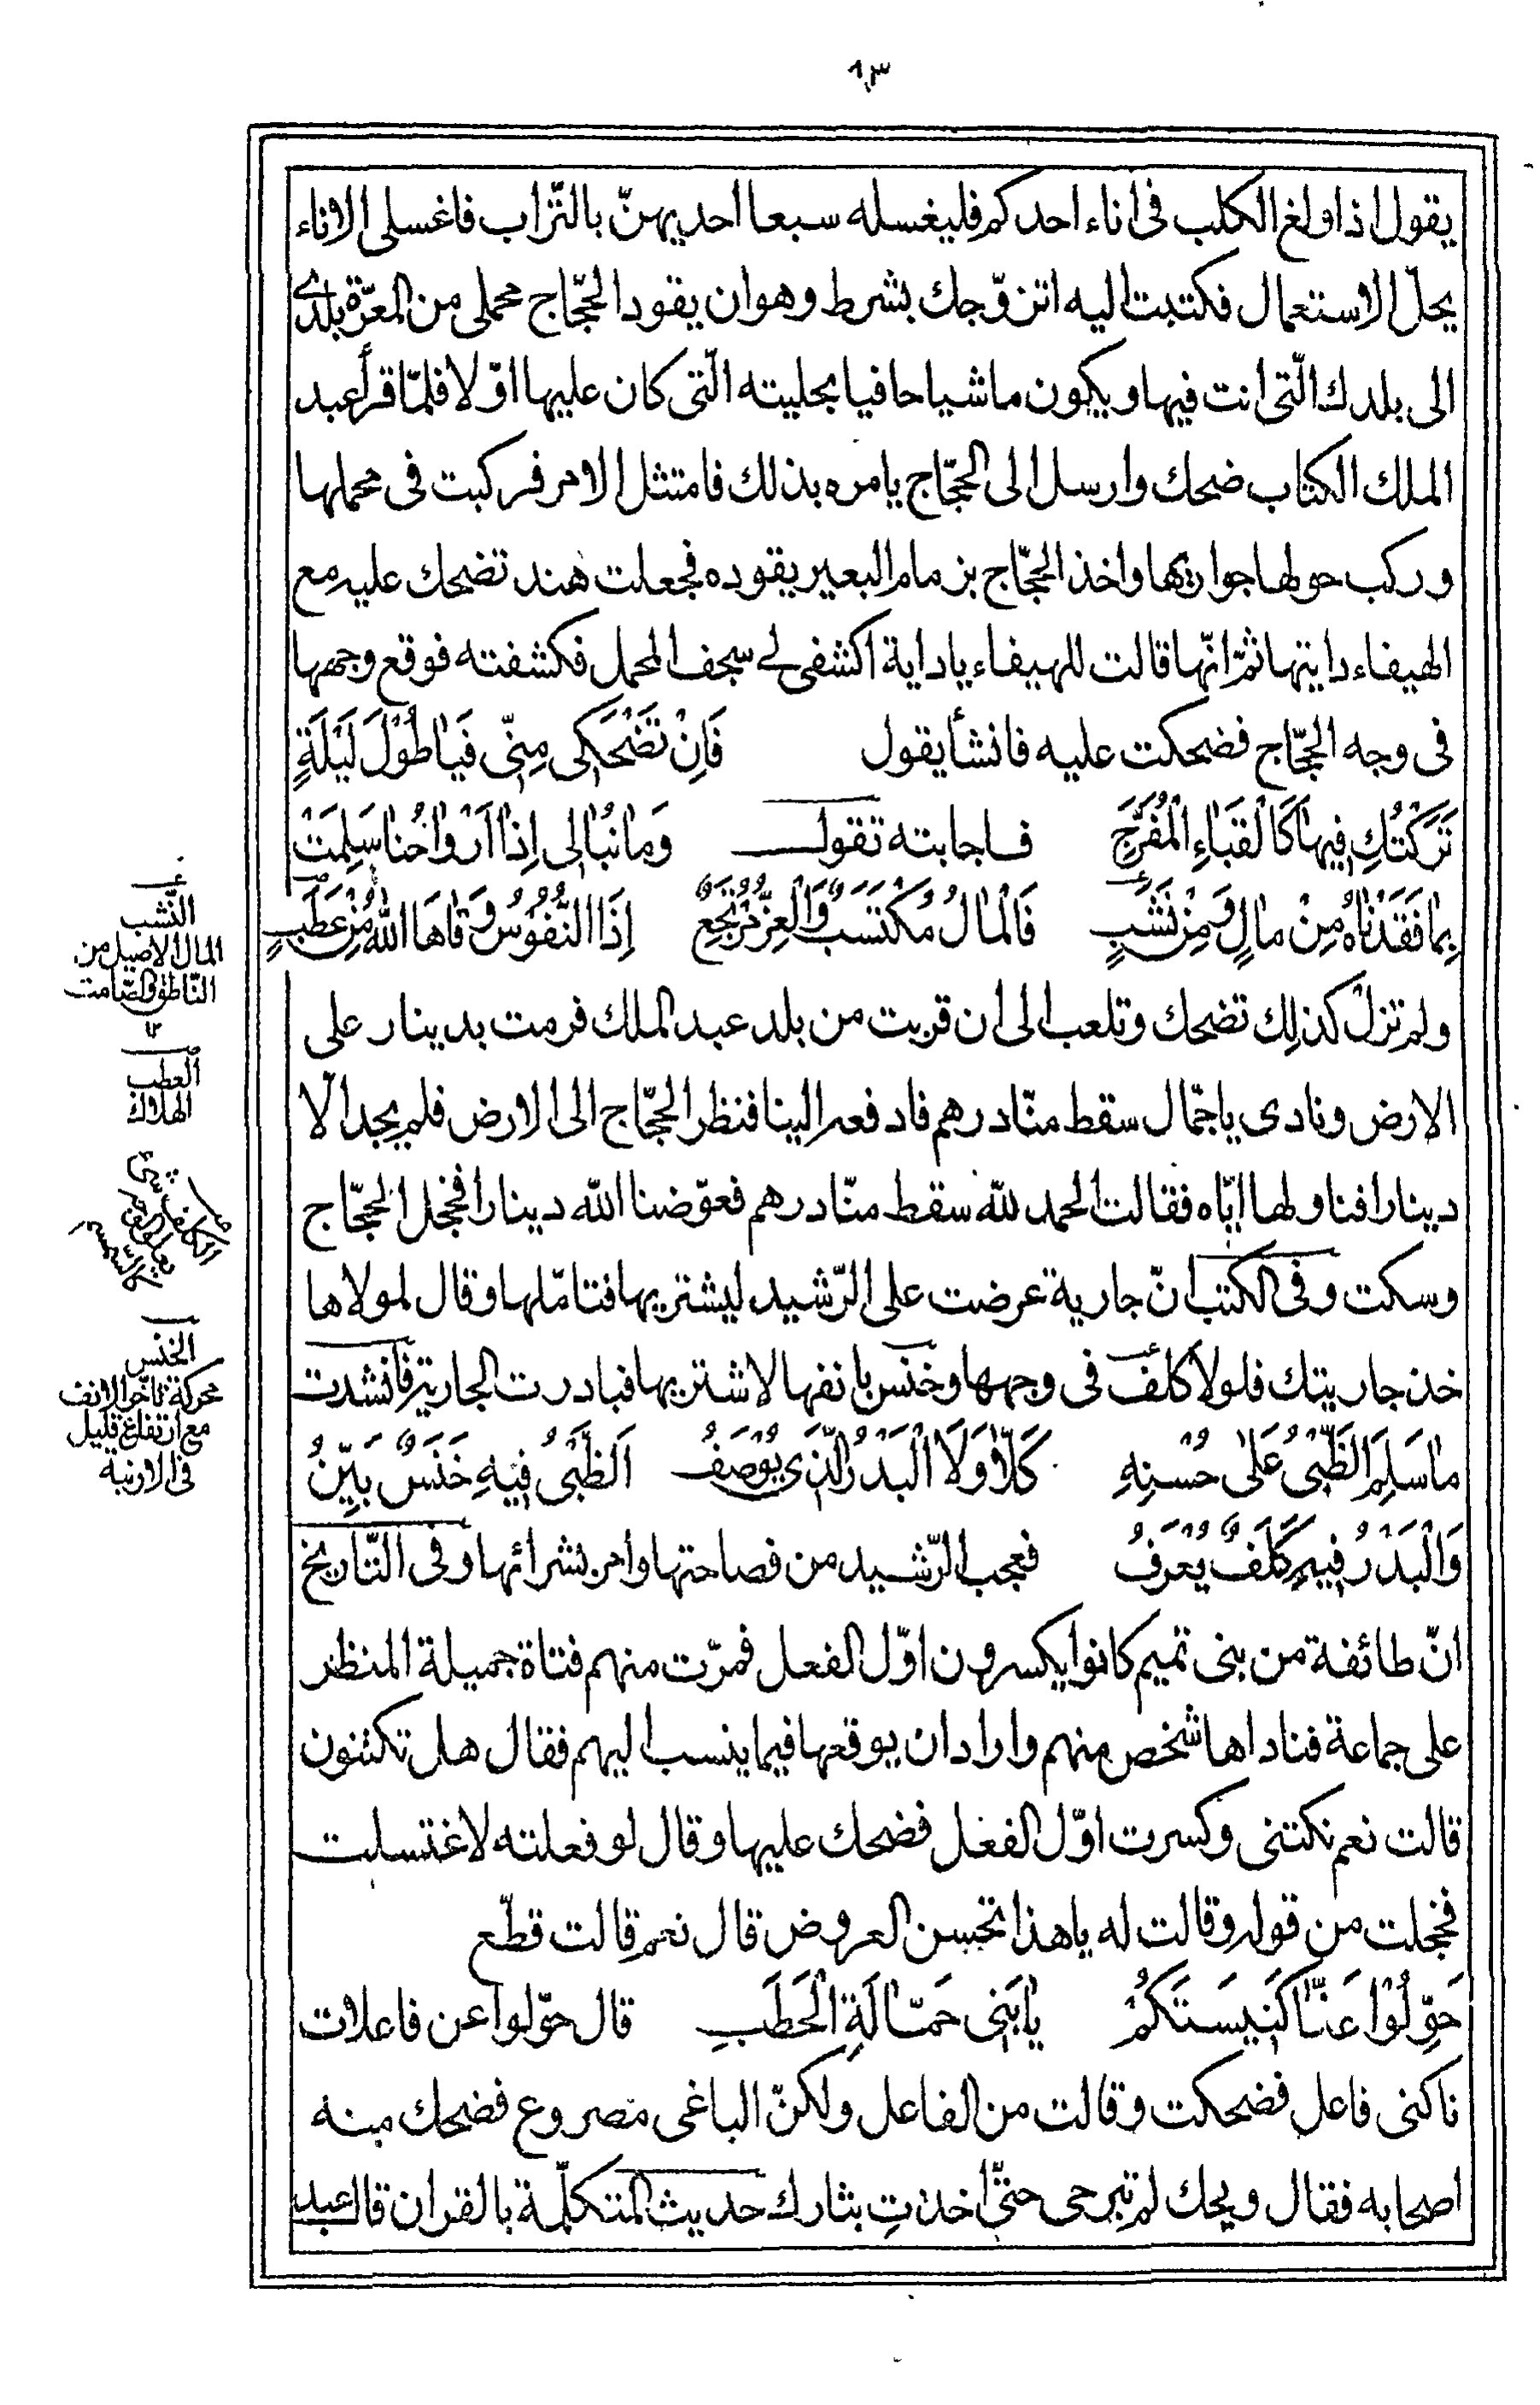 ٨٣
يقول اذا ولغ الكلب فى اناء احدكم فليغسله سبعا احديهنّ بالتّراب فاغسلى الاناء
يحلّ الاستعمال فكتبت اليه اتزوّجك بشرط وهو ان يقود الحجّاج محملى من المعرّة بلدى
الى بلدك الّتى انت فيها ويكون ماشيا حافيا بحليته الّتى كان عليها اوّلا فلمّا قرأ عبد
الملك الكتاب ضحك وارسل الى الحجّاج يامره بذلك فامتثل الامر فركبت فى محملها
وركب حولها جواريها واخذ الحجّاج بزمام البعير يقوده فجعلت هند تضحك عليه مع
الهيفاء دايتها ثمّ انّها قالت للهيفاء ياداية اكشفى لى سجف المحمل فكشفته فوقع وجهها
فى وجه الحجّاج فضحكت عليه فانشأ يقول فَاِنْ تَضْحَكى مِنّى فَيا طُوْلَ لَيْلَةٍ
تَرَكْتُكِ فيها كَالْقَباءِ الْمُفَرَّجِ فاجابته تقول وَما نُبالى اِذا اَرْواحُنا سَلِمَتْ
بِما فَقَدْناهُ مِنْ مالٍ وَمِنْ نَشَبٍ فَالْمالُ مُكْتَسَبٌ وَالْعِزُّ مُرْتَجَعٌ اِذَا النُّفُوْسُ وَقاهَا اللّٰهُ مِنْ عَطَبٍ
ولم تزل كذلك تضحك وتلعب الى ان قربت من بلد عبد الملك فرمت بدينار على
الارض ونادى ياجمّال سقط منّا درهم فادفعه الينا فنظر الحجّاج الى الارض فلم يجد الّا
دينارا فناولها ايّاه فقالت الحمد للّٰه سقط منّا درهم فعوّضنا اللّٰه دينارا فخجل الحجّاج
وسكت وفى الكتب انّ جارية عرضت على الرّشيد ليشتريها فتامّلها وقال لمولاها
خذ جاريتك فلولا كلف فى وجهها وخنس بانفها لاشتريها فبادرت الجارية فانشدت
ما سَلِمَ الظَّبْىُ عَلى حُسْنِهِ كَلّا وَلَا الْبَدْرُ الَّذى يُوْصَفُ اَلظَّبْىُ فيهِ خَنَسٌ بَيِّنٌ
وَالْبَدْرُ فيهِ كَلَفٌ يُعْرَفُ فعجب الرّشيد من فصاحتها وامر بشرائها وفى التّاريخ
انّ طائفة من بنى تميم كانوا يكسرون اوّل الفعل فمرّت منهم فتاة جميلة المنظر
على جماعة فناداها شخص منهم واراد ان يوقعها فيما ينسب اليهم فقال هل تكتنون
قالت نعم نكتنى وكسرت اوّل الفعل فضحك عليها وقال لو فعلته لاغتسلت
فخجلت من قوله وقالت له ياهذا تحسن العروض قال نعم قالت قطّع
حَوِّلُوْا عَنّا كَنيسَتَكُمْ يا بَنى حَمّالَةِ الْحَطَبِ قال حوّلوا عن فاعلات
ناكنى فاعل فضحكت وقالت من الفاعل ولكنّ الباغى مصروع فضحك منه
اصحابه فقال ويحك لم تبرحى حتّى اخذتِ بثارك حديث المتكلّمة بالقران قال عبد
النّشب
المال الاصيل من
النّاطق والصّامت
١٢
العطب
الهلاك
الكلف شئ
يعلو الوجه
كالسّمسم
الخنس
محركة تاخّر الانف
مع ارتفاع قليل
فى الارنبة